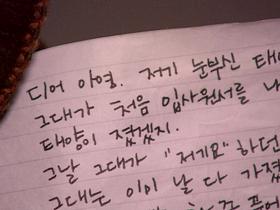 디어 아영. 저기 눈부신 태
그대가 처음 입사원서를
태양이 졌겠지.
그날 그대가 "저기요" 하던
그대는 이미 날 다 가졌